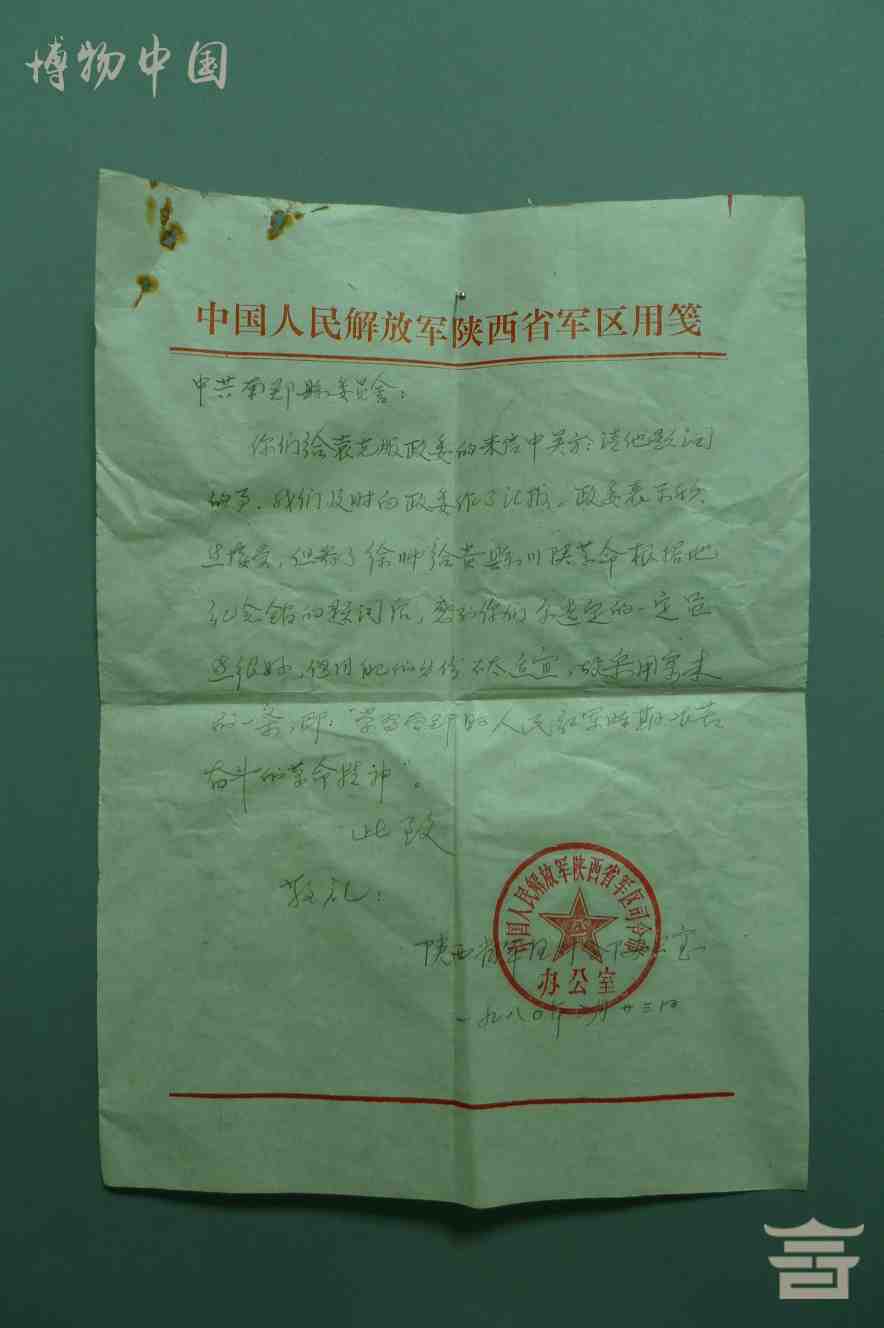 博物中国
中国人民解放军陕西省军区用笺
中共南郑县委员会：
你们给袁克服政委的来信中关于请他题词
的事，我们及时向政委作了汇报。政委表示
接受，但看了徐帅给贵县川陕革命根据地
纪念馆的题词后，感到你们
这很好，但 不太适宜，故采用寄来
的一条，即："学习 人民红军时期艰苦
奋斗的革命精神"。
此致
敬礼！
陕西省军区司令部办公室
一九八〇年 月廿三日
中国人民解放军陕西省军区司令部
办公室